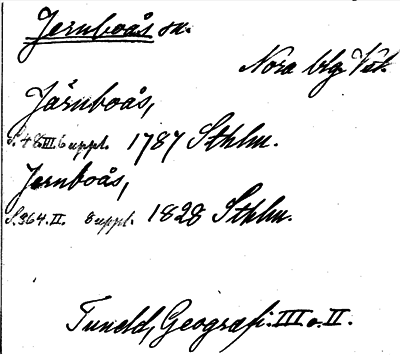 Jernboås sn.
Nora bg. Väst.
Järnboås,
S. 48 III. 6 uppl. 1787 Sthlm.
Jernboås,
S. 364. II. 8 uppl. 1828 Sthlm.
Tuneld, Geografi. III o. II.